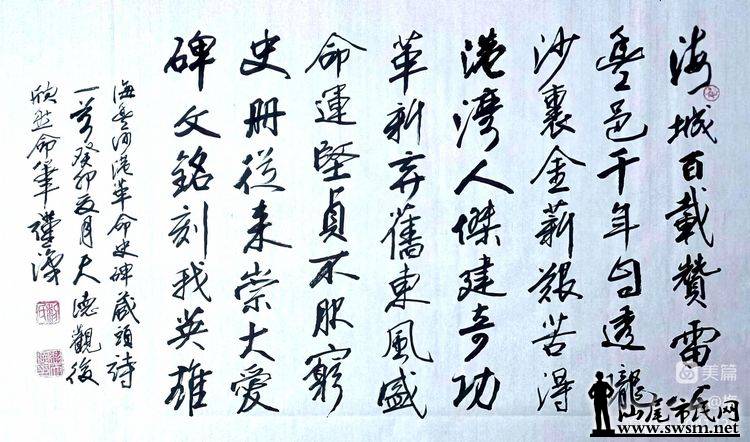 海城百載贊雷
豐邑千年自透龍
沙裏金薪艱苦得
港灣人傑建奇功
革新弃舊東風盛
命運堅貞不服窮
史册從來崇大愛
碑文銘刻我英雄
海豐沙港革命史碑藏頭詩
一首癸卯夏月大德觀後
欣然命筆
美篇
汕尾市民网
www.swsm.net